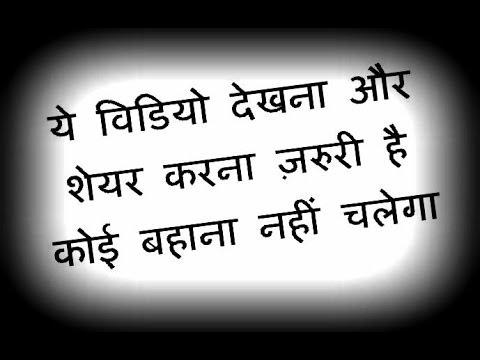 ये विडियो देखना और
शेयर करना ज़रुरी है
कोई बहाना नहीं चलेगा